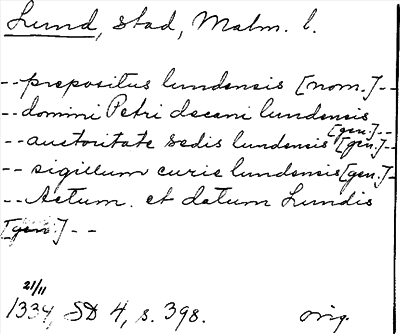 Lund, stad, Malm. l.
-- prepositus lundensis [nom.] --
-- domini Petri decani lundensis
[gen.] --
-- auctoritate sedis lundensis [gen.] --
-- sigillum curie lundensis [gen.] -
-- Actum et datum Lundis
[gen.] --
21/11
1334, SD 4, s. 398. orig.